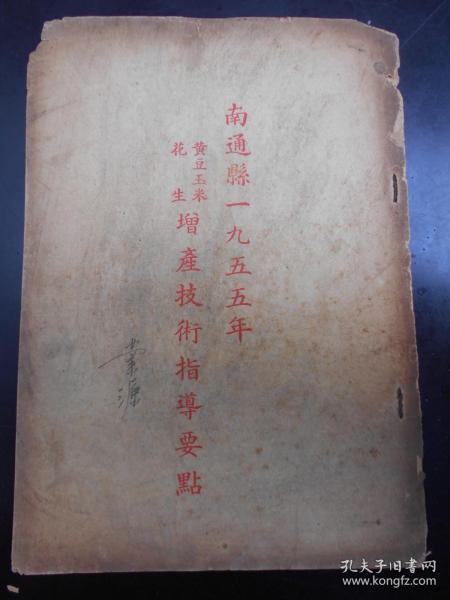 南通縣一九五五年
黃豆玉米
花生
增產技術指導要點
孔夫子旧书网
www.kongfz.com